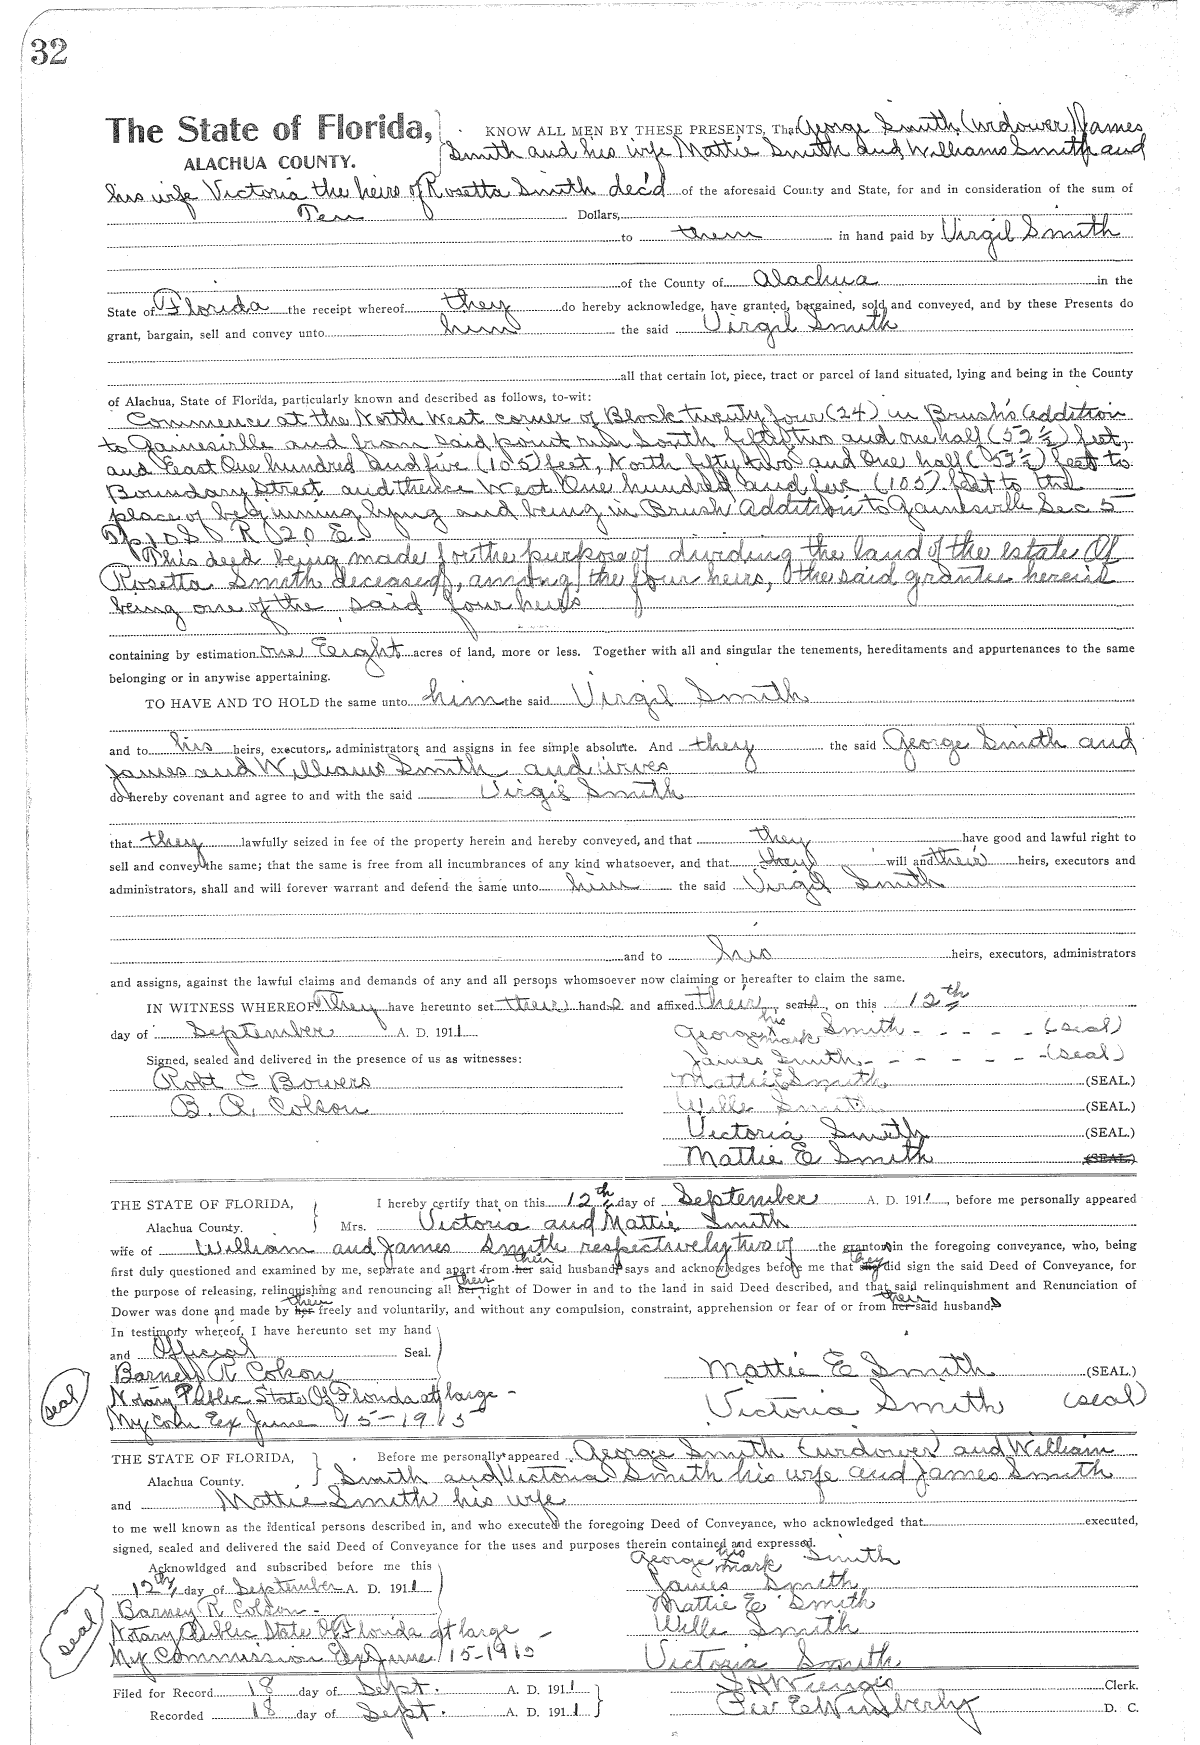 32
The State of Florida, KNOW ALL MEN BY THESE PRESENTS, That George Smith (widower) James
ALACHUA COUNTY. Smith and his wife Mattie Smith and Williams Smith and
his wife Victoria the heirs of Rosetta Smith dec'd of the aforesaid County and State, for and in consideration of the sum of
Ten Dollars,
to them in hand paid by Virgil Smith
of the County of Alachua in the
State of Florida the receipt whereof they do hereby acknowledge, have granted, bargained, sold and conveyed, and by these Presents do
grant, bargain, sell and convey unto him the said Virgil Smith
all that certain lot, piece, tract or parcel of land situated, lying and being in the County
of Alachua, State of Florida, particularly known and described as follows, to-wit:
Commence at the North West corner of Block twenty four (24) in Brush's addition
to Gainesville and from said point run South fifty two and one half (52½) feet,
and East One hundred and five (105) feet, North fifty two and One half (52½) feet to
Boundary Street and thence West One hundred and five (105) feet to the
place of beginning lying and being in Brush Addition to Gainesville Sec 5
Tp 10 S R 20 E
This deed being made for the purpose of dividing the land of the estate Of
Rosetta Smith deceased, among the four heirs, the said grantee herein
being one of the said four heirs
containing by estimation one Eight acres of land, more or less. Together with all and singular the tenements, hereditaments and appurtenances to the same
belonging or in anywise appertaining.
TO HAVE AND TO HOLD the same unto him the said Virgil Smith
and to his heirs, executors, administrators and assigns in fee simple absolute. And they the said George Smith and
James and Williams Smith and wives
do hereby covenant and agree to and with the said Virgil Smith
that they lawfully seized in fee of the property herein and hereby conveyed, and that they have good and lawful right to
sell and convey the same; that the same is free from all incumbrances of any kind whatsoever, and that they will and their heirs, executors and
administrators, shall and will forever warrant and defend the same unto him the said Virgil Smith
and to his heirs, executors, administrators
and assigns, against the lawful claims and demands of any and all persons whomsoever now claiming or hereafter to claim the same.
IN WITNESS WHEREOF They have hereunto set their hands and affixed their seals, on this 12th
day of September A. D. 1911 George his mark Smith - - - - - (seal)
Signed, sealed and delivered in the presence of us as witnesses: James Smith - - - - - (seal)
Robt C Bowers Mattie E Smith (SEAL.)
B. R. Colson Wille Smith (SEAL.)
Victoria Smith (SEAL.)
Mattie E Smith (SEAL.)
THE STATE OF FLORIDA, I hereby certify that on this 12th day of September A. D. 1911, before me personally appeared
Alachua County. Mrs. Victoria and Mattie Smith
wife of William and James Smith respectively two of the grantors in the foregoing conveyance, who, being
first duly questioned and examined by me, separate and apart from her their said husbands says and acknowledges before me that they did sign the said Deed of Conveyance, for
the purpose of releasing, relinquishing and renouncing all her their right of Dower in and to the land in said Deed described, and that said relinquishment and Renunciation of
Dower was done and made by her them freely and voluntarily, and without any compulsion, constraint, apprehension or fear of or from her their said husbands
In testimony whereof, I have hereunto set my hand
and Official Seal.
Barney R Colson Mattie E Smith (SEAL.)
seal Notary Public State Of Florida at large - Victoria Smith (seal)
My Com Ex June 15-1915
THE STATE OF FLORIDA, Before me personally appeared George Smith (widower) and William
Alachua County. Smith and Victoria Smith his wife and James Smith
and Mattie Smith his wife
to me well known as the identical persons described in, and who executed the foregoing Deed of Conveyance, who acknowledged that executed,
signed, sealed and delivered the said Deed of Conveyance for the uses and purposes therein contained and expressed.
Acknowldged and subscribed before me this George his mark Smith
12th day of September A. D. 1911 James Smith
Barney R Colson - Mattie E Smith
seal Notary Public State Of Florida at large - Wille Smith
My Commission Ex June 15-1915 Victoria Smith
Filed for Record 18 day of Sept. A. D. 1911 Clerk.
Recorded 18 day of Sept. A. D. 1911 Wimberly D. C.